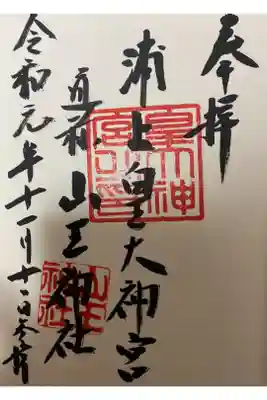 奉拝
浦上皇大神宮
元称 山王神社
令和元年十一月十二日参拝
皇大神宮之印
山王神社